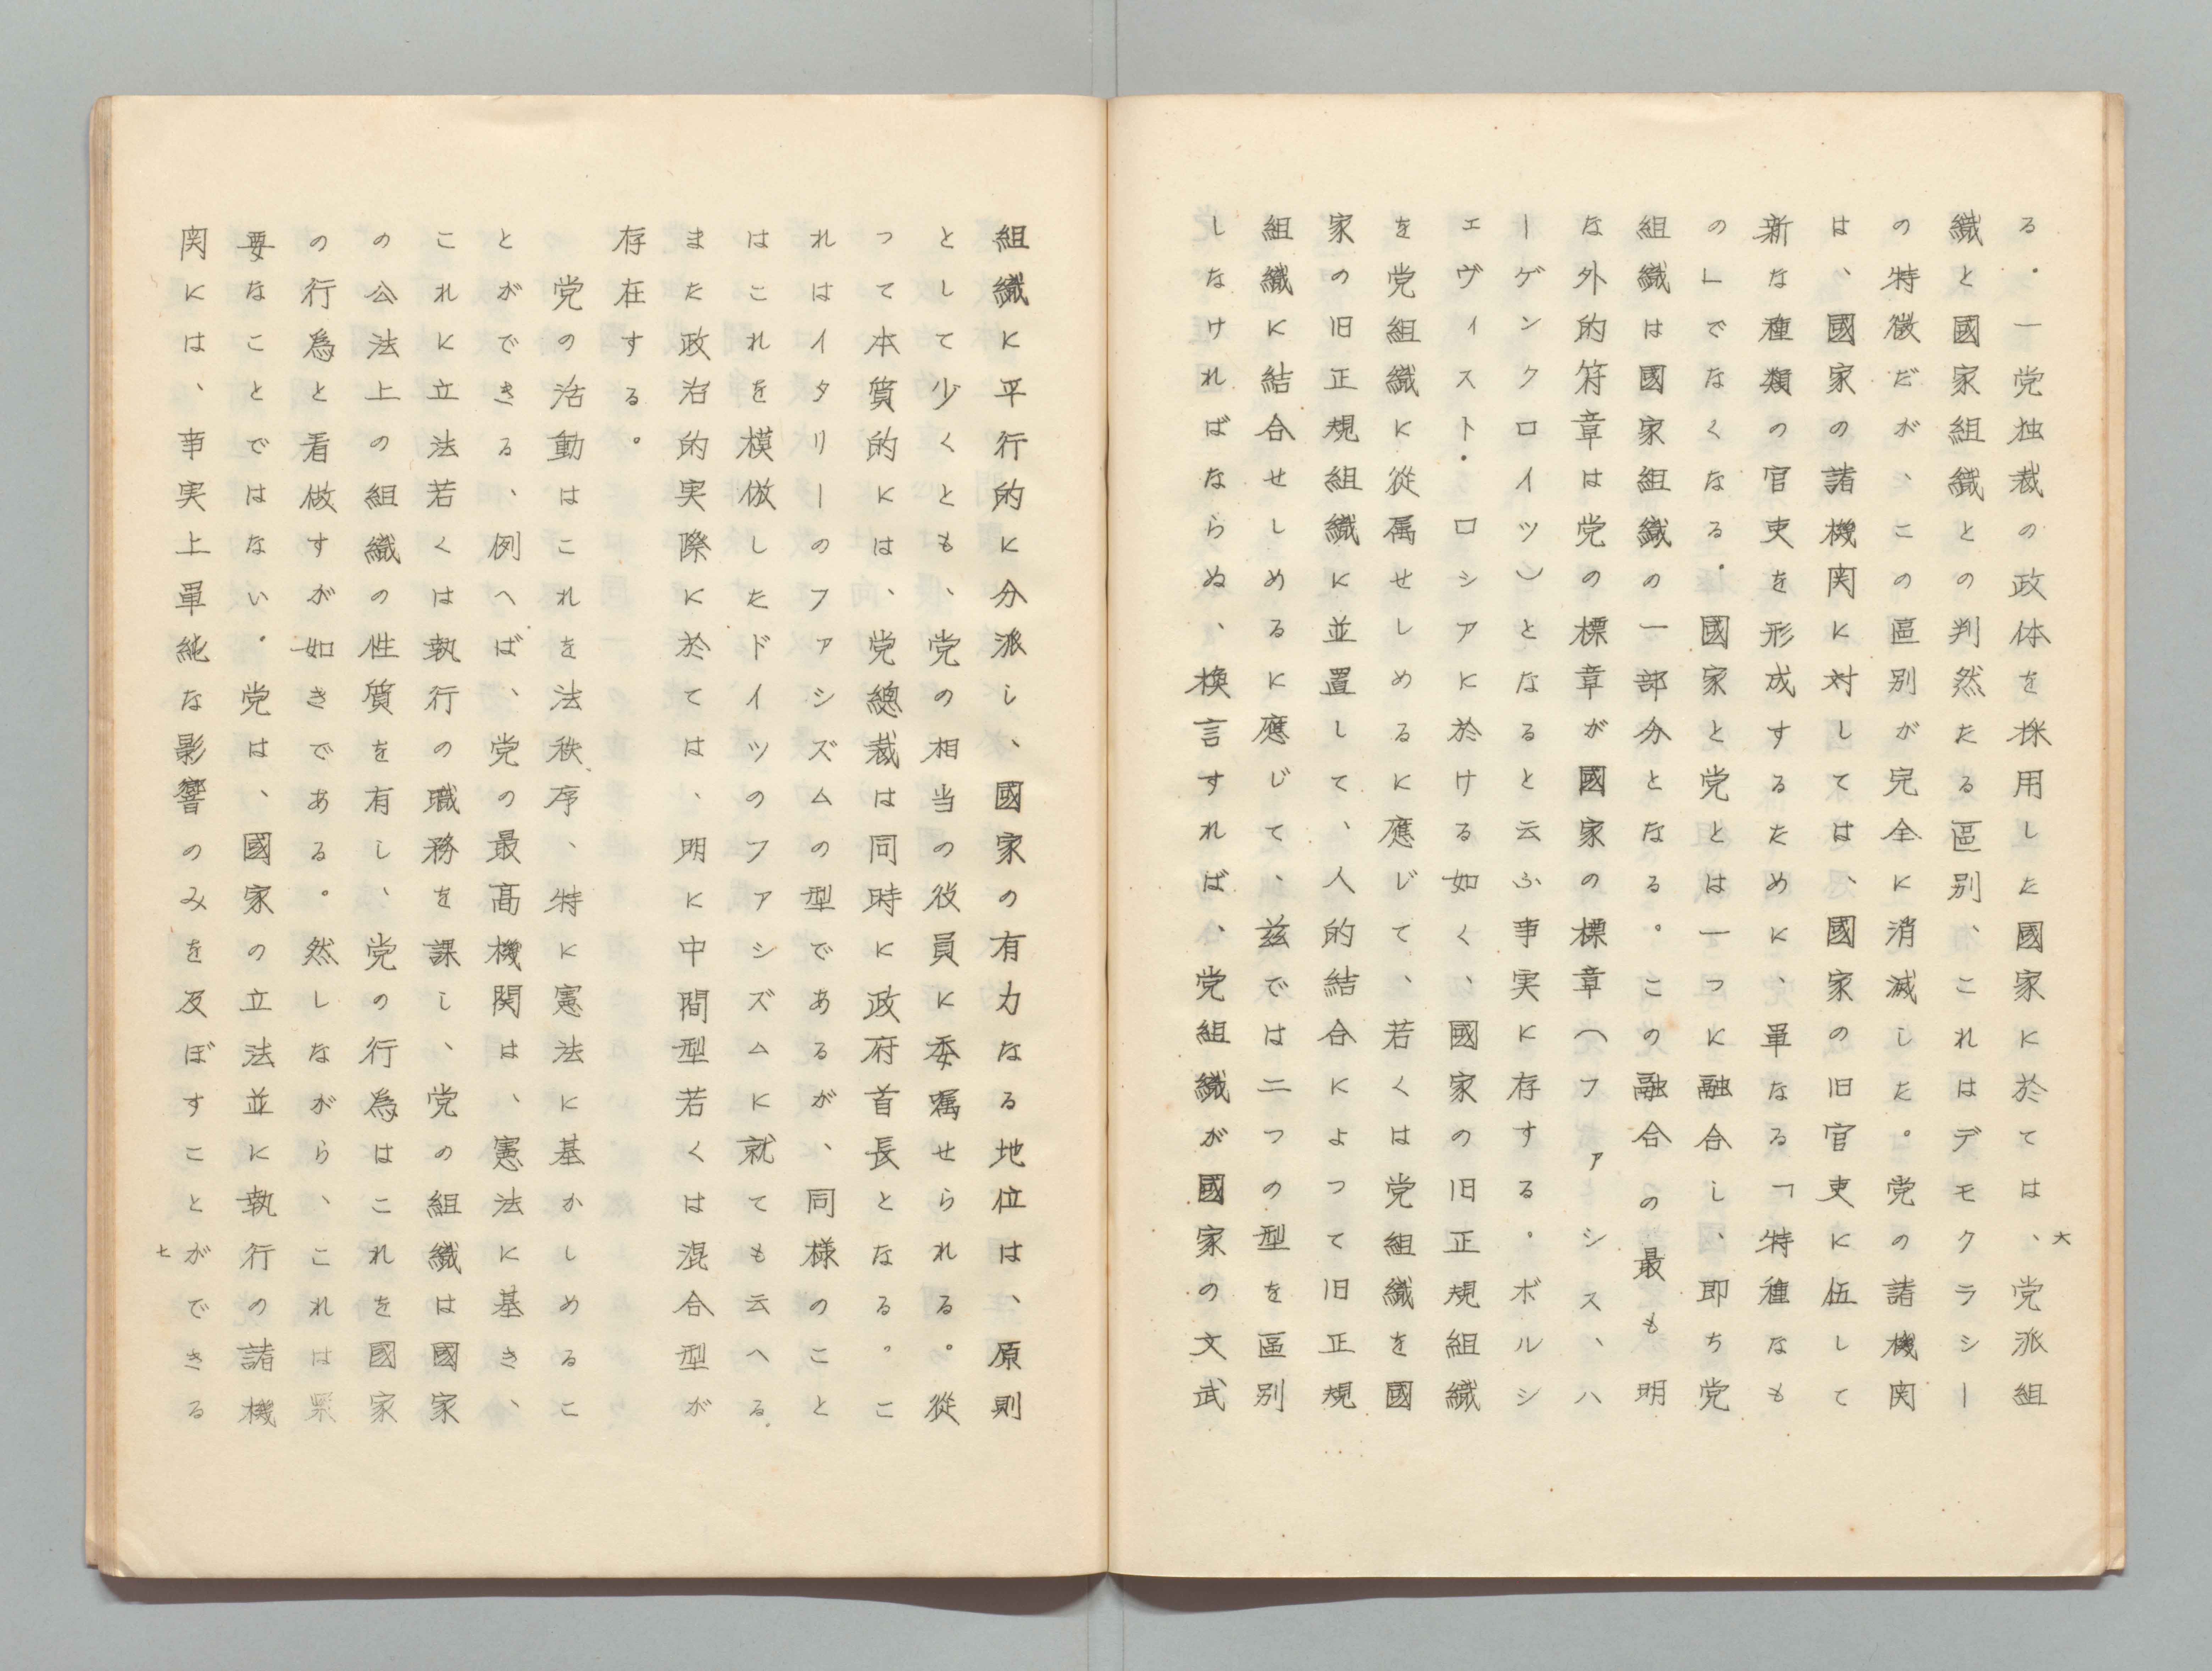 る．一党独裁の政体を採用した國家に於ては、党派組
織と國家組織との判然たる區別、これはデモクラシー
の特徴だが、この區別が完全に消滅した。党の諸機関
は、國家の諸機関に対しては、國家の旧官吏に伍して
新な種類の官吏を形成するために、單なる「特種なも
の」でなくなる．國家と党とは一つに融合し、即ち党
組織は國家組織の一部分となる。この融合の最も明
な外的符章は党の標章が國家の標章（ファシス、ハ
ーゲンクロイツ）となると云ふ事実に存する．ボルシ
ェヴィスト・ロシアに於ける如く、國家の旧正規組織
を党組織に從属せしめるに應じて、若くは党組織を國
家の旧正規組織に並置して、人的結合によつて旧正規
組織に結合せしめるに應じて、茲では二つの型を區別
しなければならぬ、換言すれば、党組織が國家の文武
六
組織に平行的に分派し、國家の有力なる地位は、原則
として少くとも、党の相当の役員に委嘱せられる。從
つて本質的には、党總裁は同時に政府首長となる。こ
れはイタリーのファシズムの型であるが、同様のこと
はこれを模倣したドイツのファシズムに就ても云へる．
また政治的実際に於ては、明に中間型若くは混合型が
存在する。
党の活動はこれを法秩序、特に憲法に基かしめるこ
とができる、例へば、党の最高機関は、憲法に基き、
これに立法若くは執行の職務を課し、党の組織は國家
の公法上の組織の性質を有し、党の行為はこれを國家
の行為と看做すが如きである。然しながら、これは必
要なことではない．党は、國家の立法並に執行の諸機
関には、事実上單純な影響のみを及ぼすことができる
七